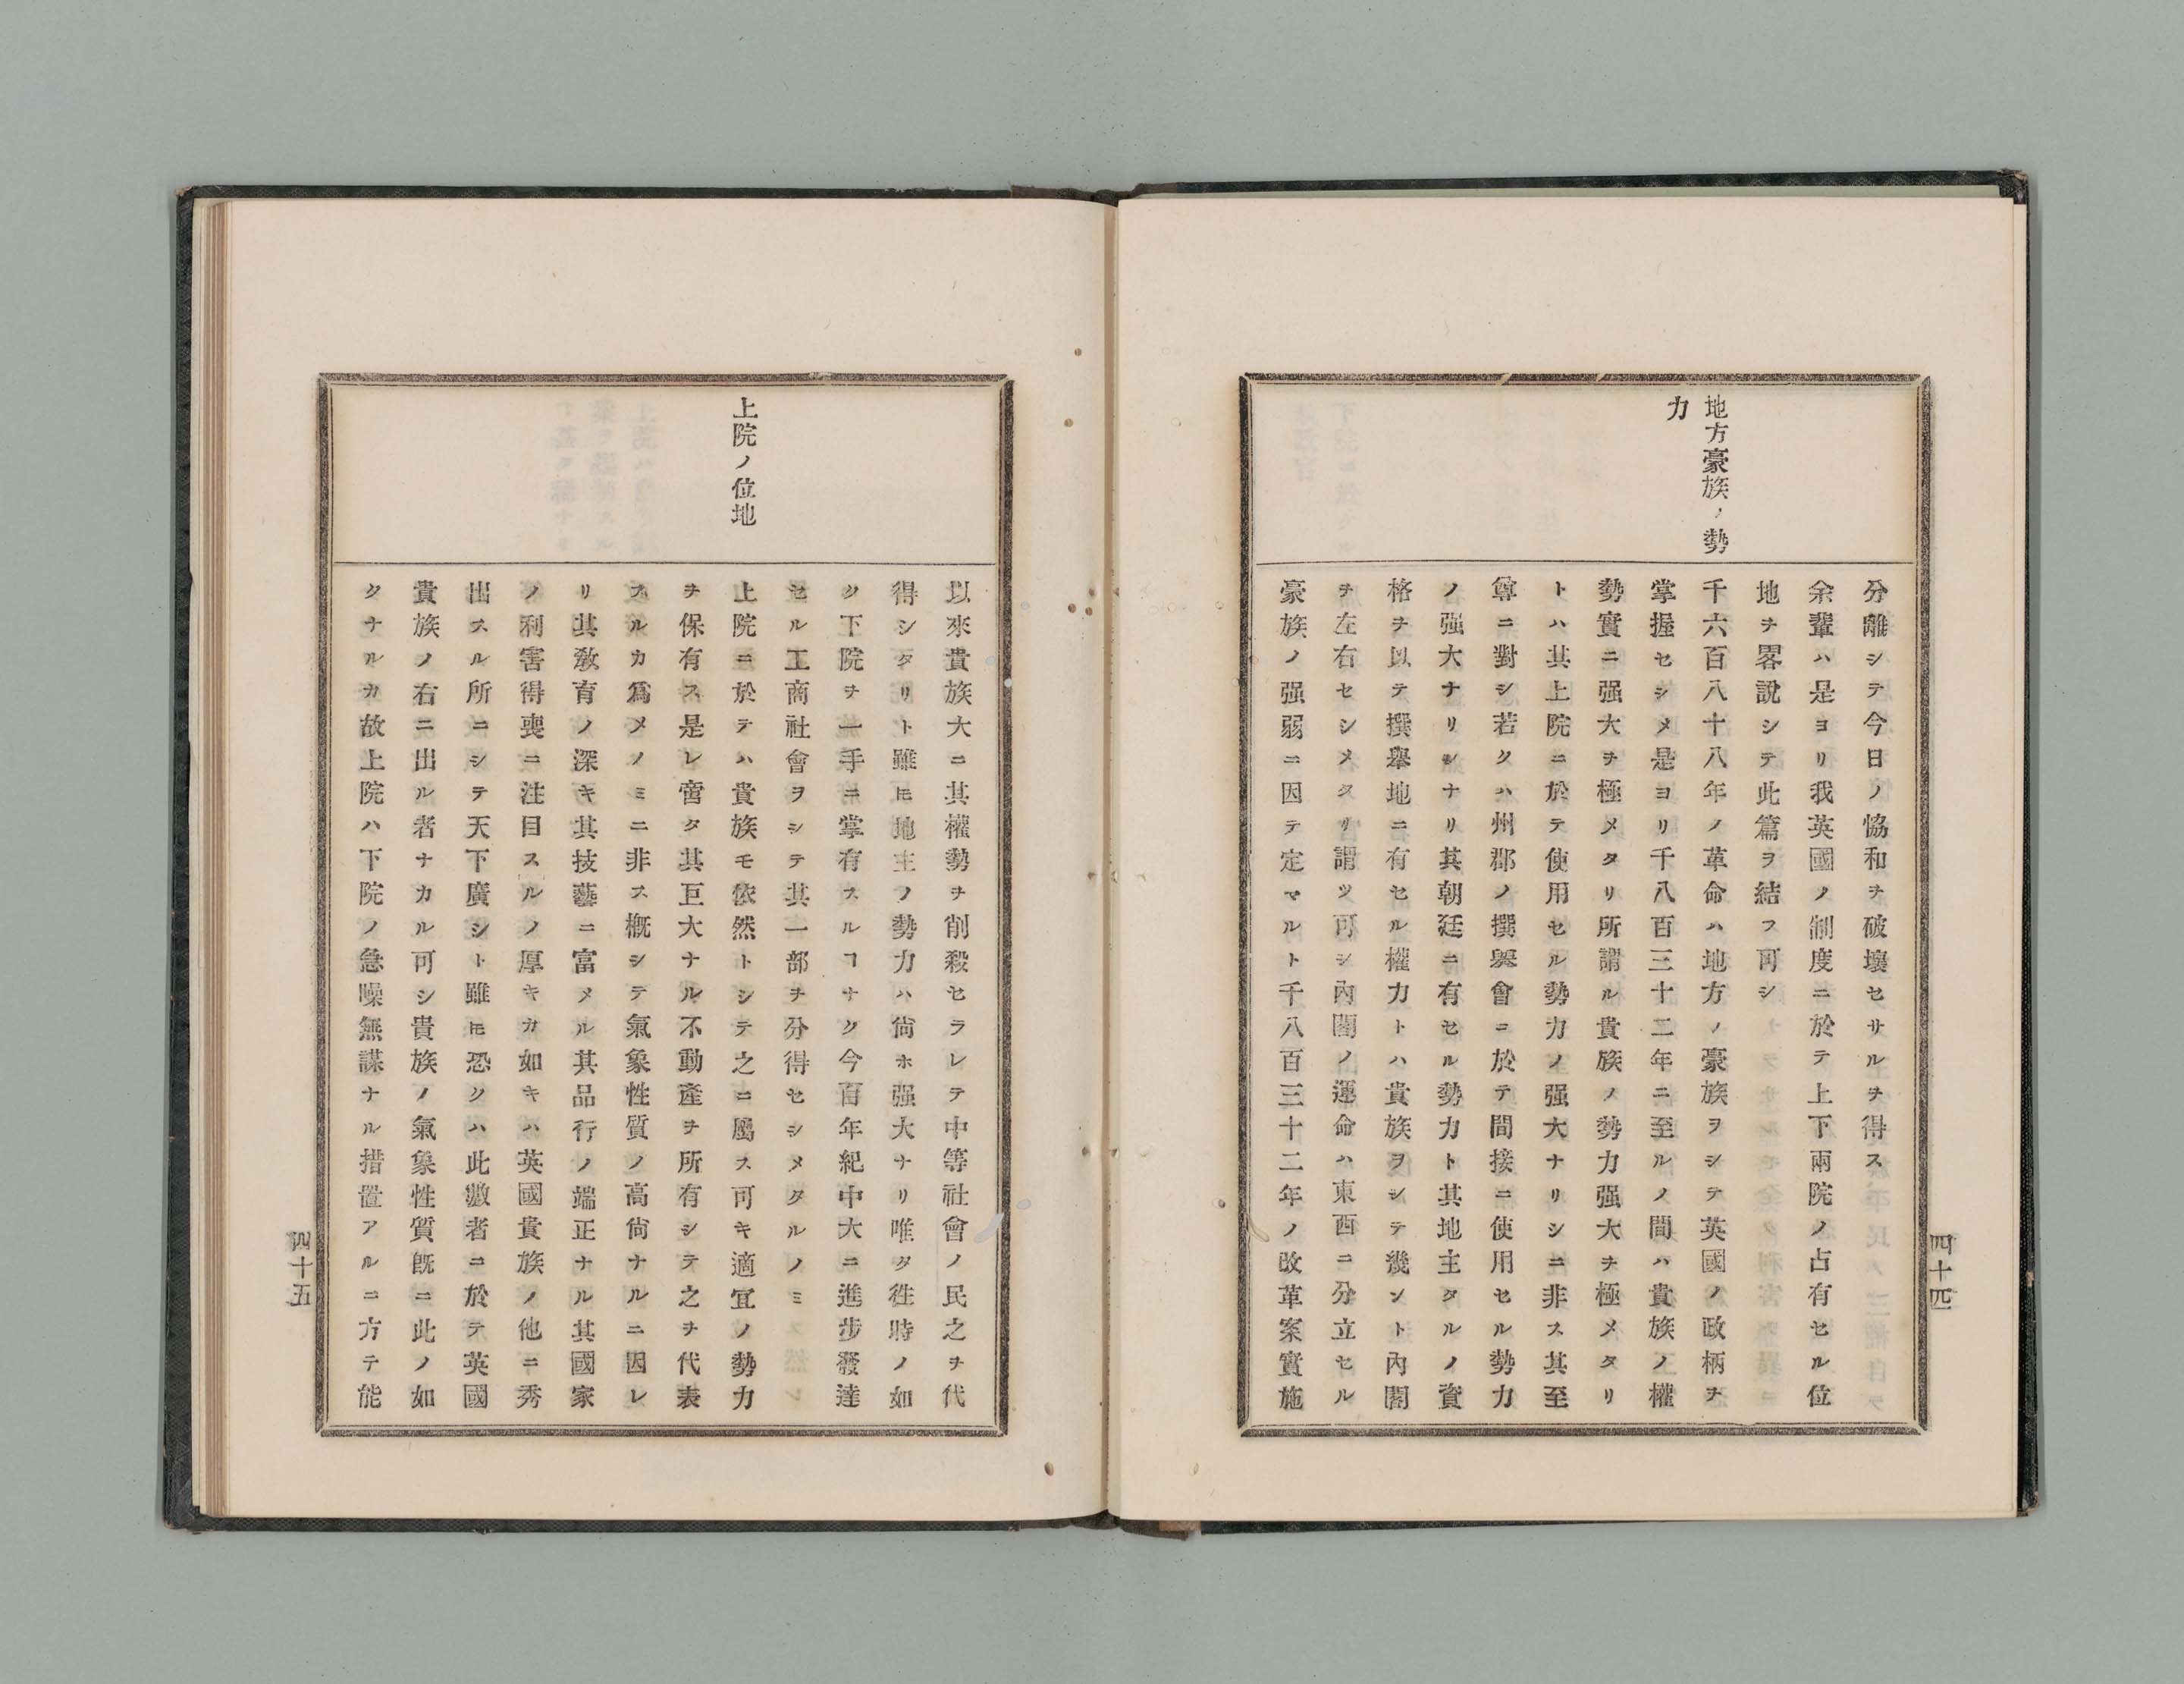 地方豪族ノ勢
力
分離シテ今日ノ恊和ヲ破壞セサルヲ得ス
余輩ハ是ヨリ我英國ノ制度ニ於テ上下兩院ノ占有セル位
地ヲ畧說シテ此篇ヲ結フ可シ
千六百八十八年ノ革命ハ地方ノ豪族ヲシテ英國ノ政柄ヲ
掌握セシメ是ヨリ千八百三十二年ニ至ルノ間ハ貴族ノ權
勢實ニ强大ヲ極メタリ所謂ル貴族ノ勢力强大ヲ極メタリ
トハ其上院ニ於テ使用セル勢力ノ强大ナリシニ非ス其至
尊ニ對シ若クハ州郡ノ撰擧會ニ於テ間接ニ使用セル勢力
ノ强大ナリシナリ其朝廷ニ有セル勢力ト其地主タルノ資
格ヲ以テ撰擧地ニ有セル權力トハ貴族ヲシテ幾ント內閣
ヲ左右セシメタリ謂ツ可シ內閣ノ運命ハ東西ニ分立セル
豪族ノ强弱ニ因テ定マルト千八百三十二年ノ改革案實施
四十四
上院ノ位地
以來貴族大ニ其權勢ヲ削殺セラレテ中等社會ノ民之ヲ代
得シタリト雖モ地主ノ勢力ハ尙ホ强大ナリ唯タ徃時ノ如
ク下院ヲ一手ニ掌有スルヿナク今百年紀中大ニ進步發達
セル工商社會ヲシテ其一部ヲ分得セシメタルノミ
上院ニ於テハ貴族モ依然トシテ之ニ屬ス可キ適宜ノ勢力
ヲ保有ス是レ啻タ其巨大ナル不動產ヲ所有シテ之ヲ代表
スルカ爲メノミニ非ス槪シテ氣象性質ノ高尙ナルニ因レ
リ其敎育ノ深キ其技藝ニ富メル其品行ノ端正ナル其國家
ノ利害得喪ニ注目スルノ厚キカ如キハ英國貴族ノ他ニ秀
出スル所ニシテ天下廣シト雖モ恐クハ此數者ニ於テ英國
貴族ノ右ニ出ル者ナカル可シ貴族ノ氣象性質既ニ此ノ如
クナルカ故上院ハ下院ノ急噪無謀ナル措置アルニ方テ能
四十五